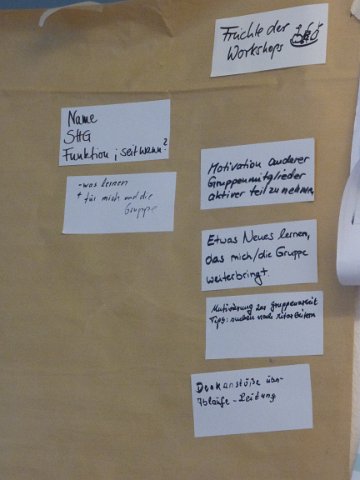 Früchte der
Workshops
Name
SHG
Funktion, seit wann?
- was lernen
+ für mich und die
Gruppe
Motivation anderer
Gruppenmitglieder
aktiver teil zu nehmen,
Etwas Neues lernen,
das mich/die Gruppe
weiterbringt.
Motivierung zur Gruppenarbeit
Tips: suchen nach Mitarbeitern
Denkanstöße
Abläufe - Leitung